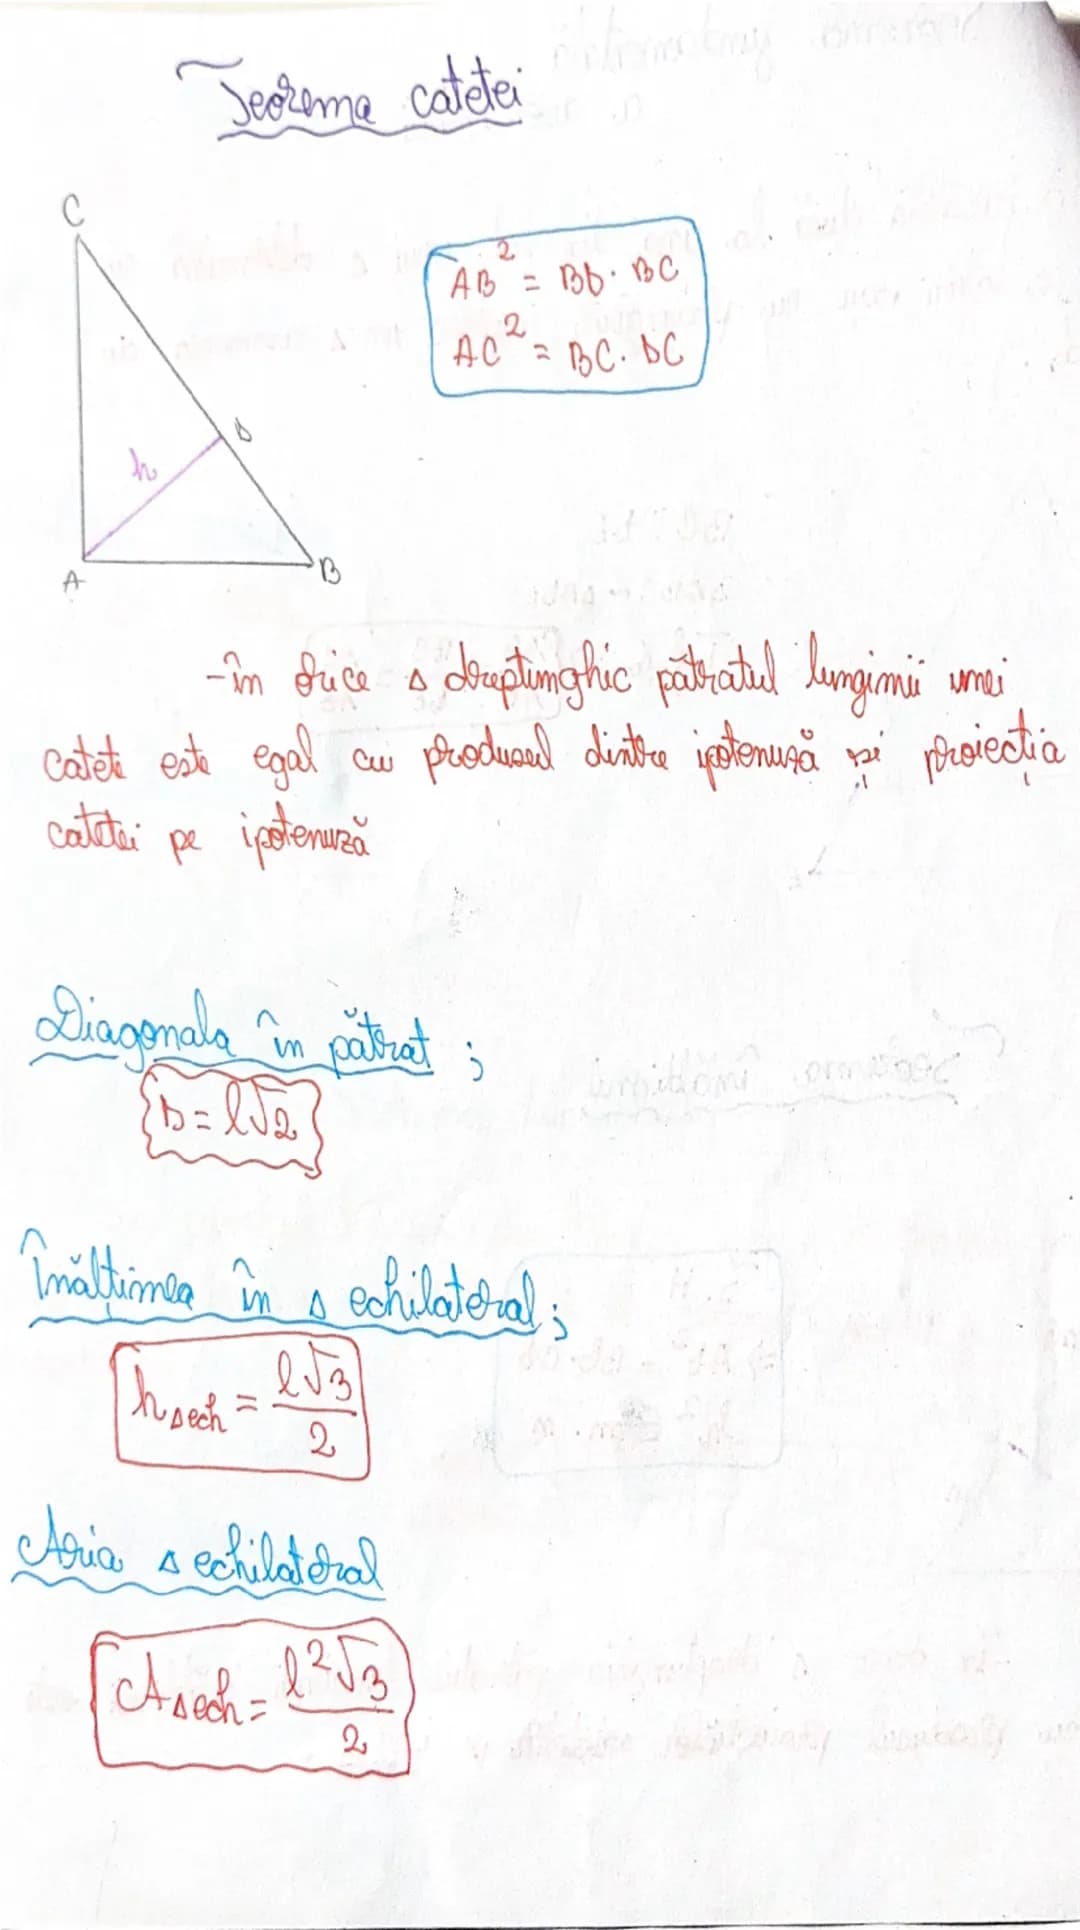 Teorema catetei
C
AB² = BD · BC
AC² = BC · DC
h
D
A
B
-în orice Δ dreptunghic pătratul lungimii unei
catete este egal cu produsul dintre ipotenuză și proiecția
catetei pe ipotenuză
Diagonala în pătrat ;
D = l√2
Înălțimea în Δ echilateral ;
hΔech = l√3
2
Aria Δ echilateral
AΔech = l²√3
2